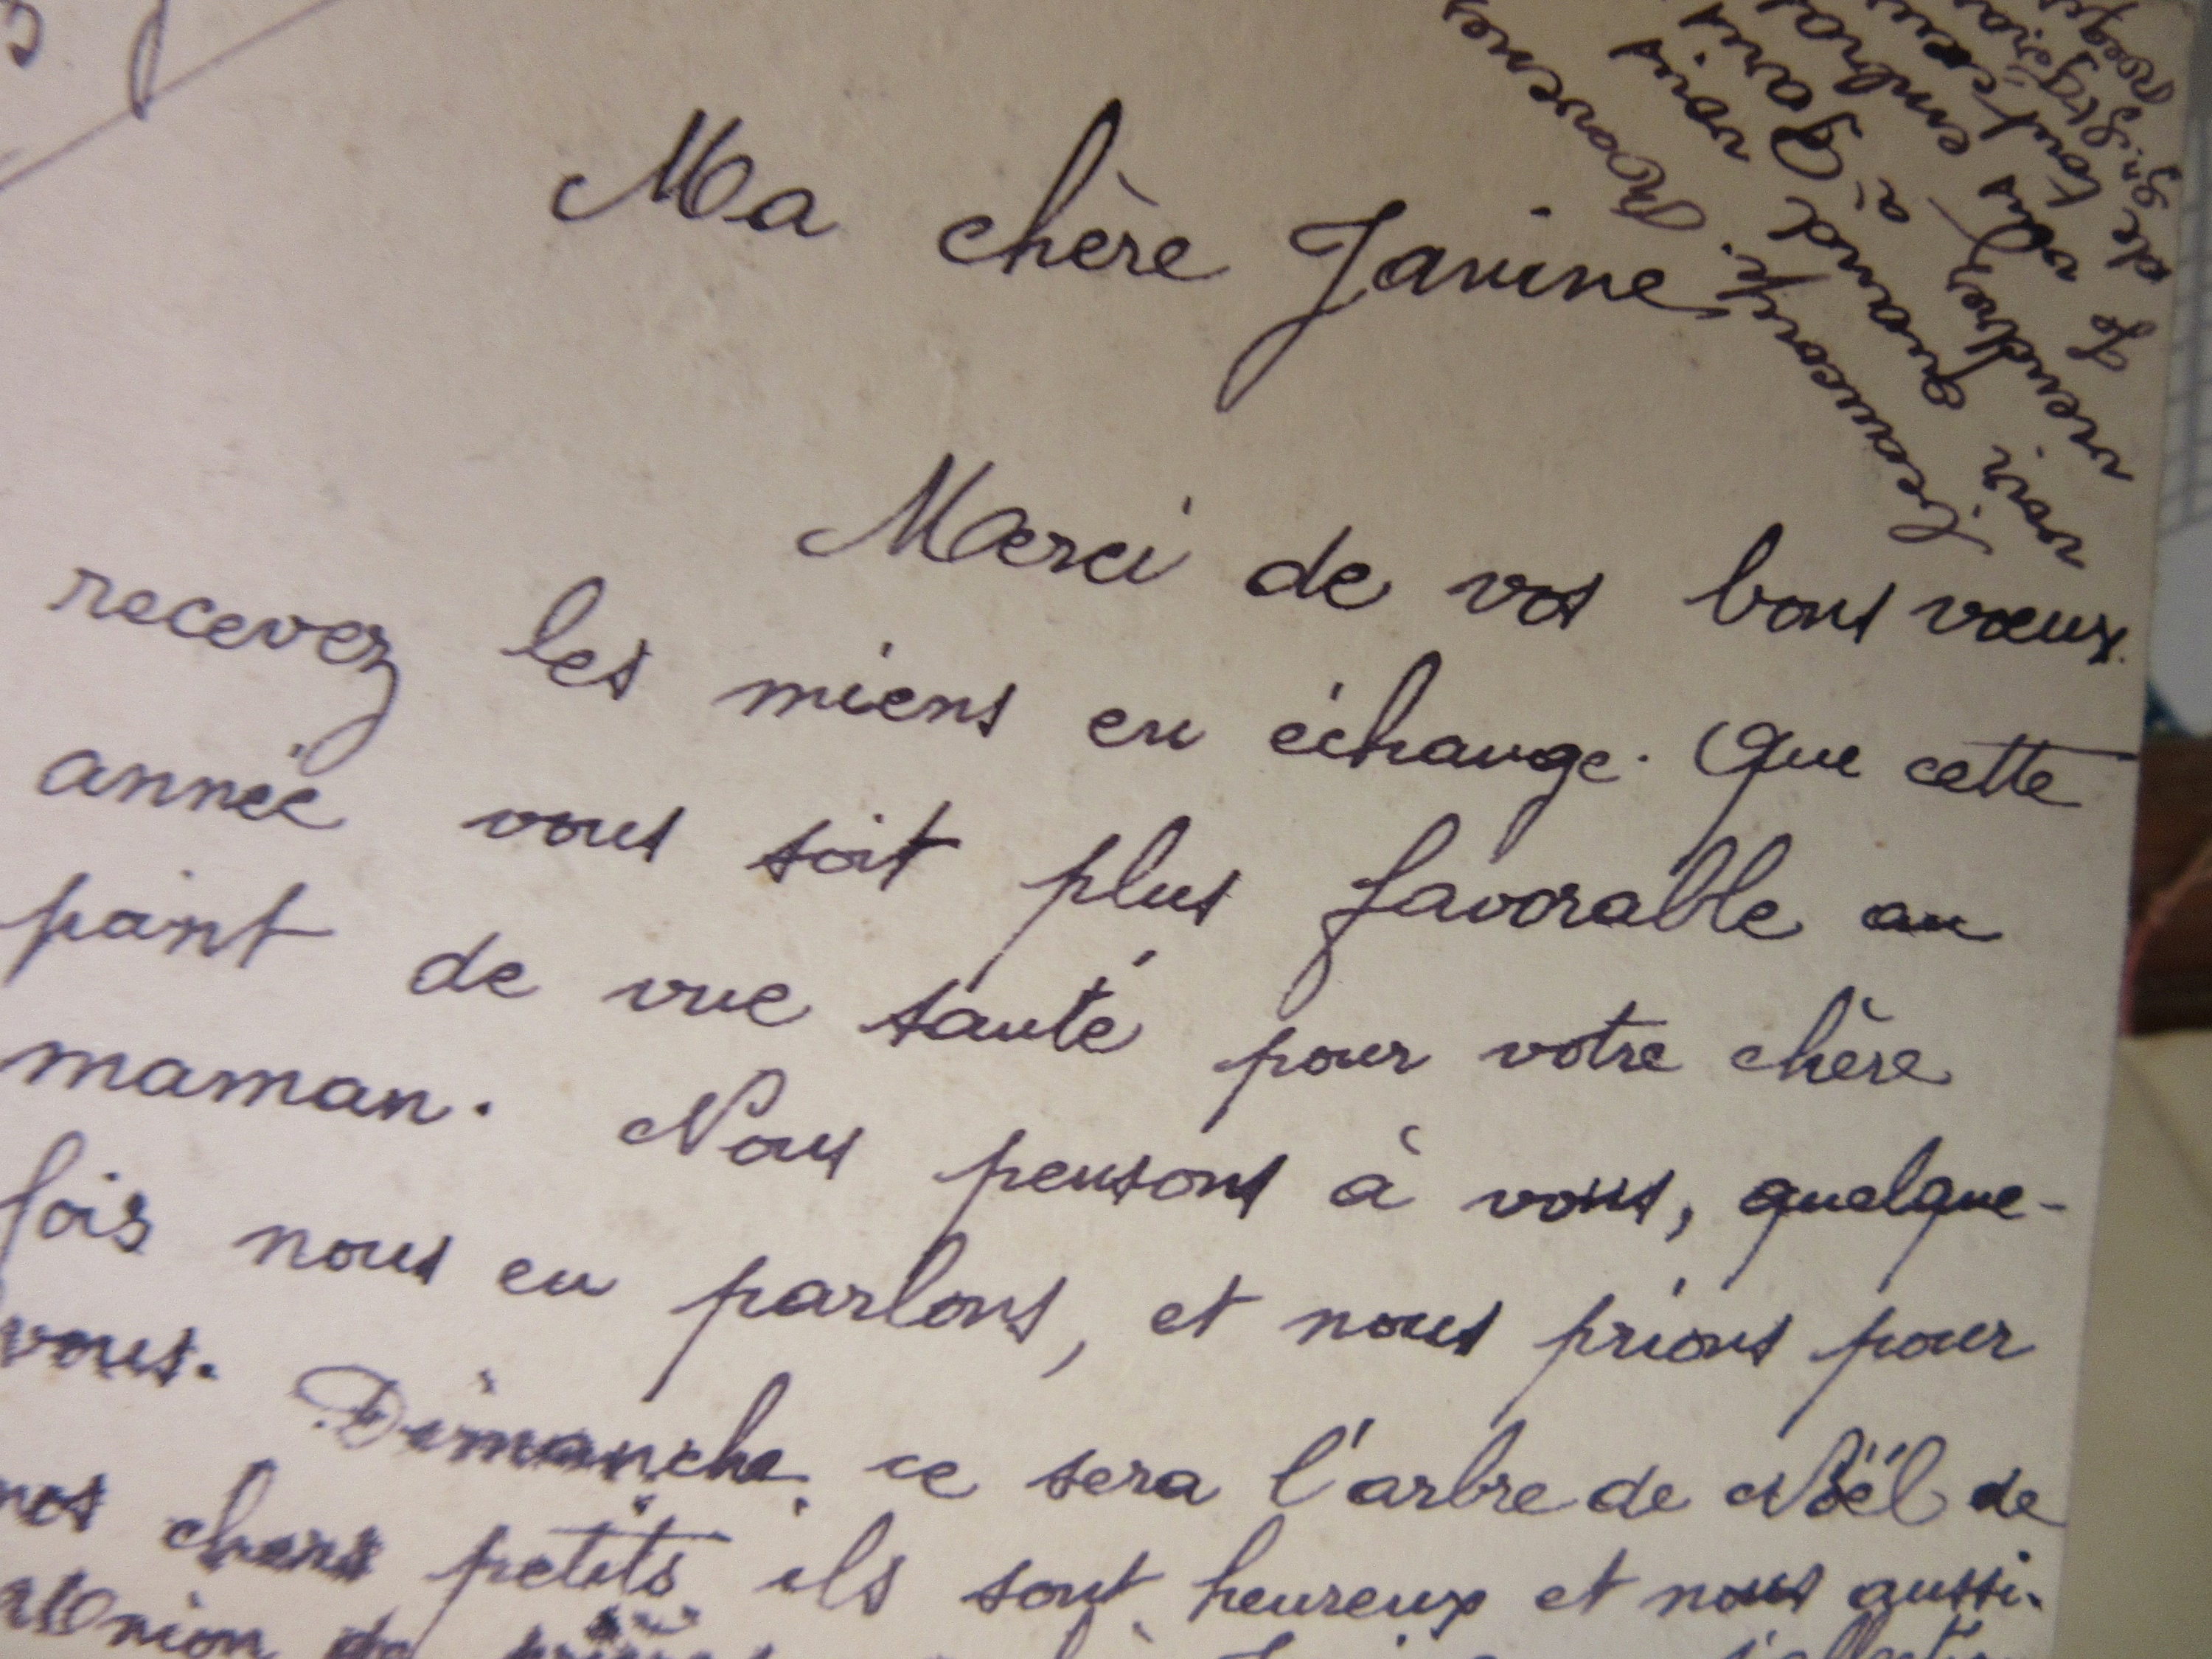 Ma chère Janine
Merci de vos bons vœux.
recevez les miens en échange. Que cette
année vous soit plus favorable au
point de vue santé pour votre chère
maman. Nous pensons à vous, quelque-
fois nous en parlons, et nous prions pour
vous. Dimanche, ce sera l'arbre de Noël de
nos chers petits ils sont heureux et nous aussi.
Union de
voir quand vous
viendrez à Paris
Je vous
de tout cœur